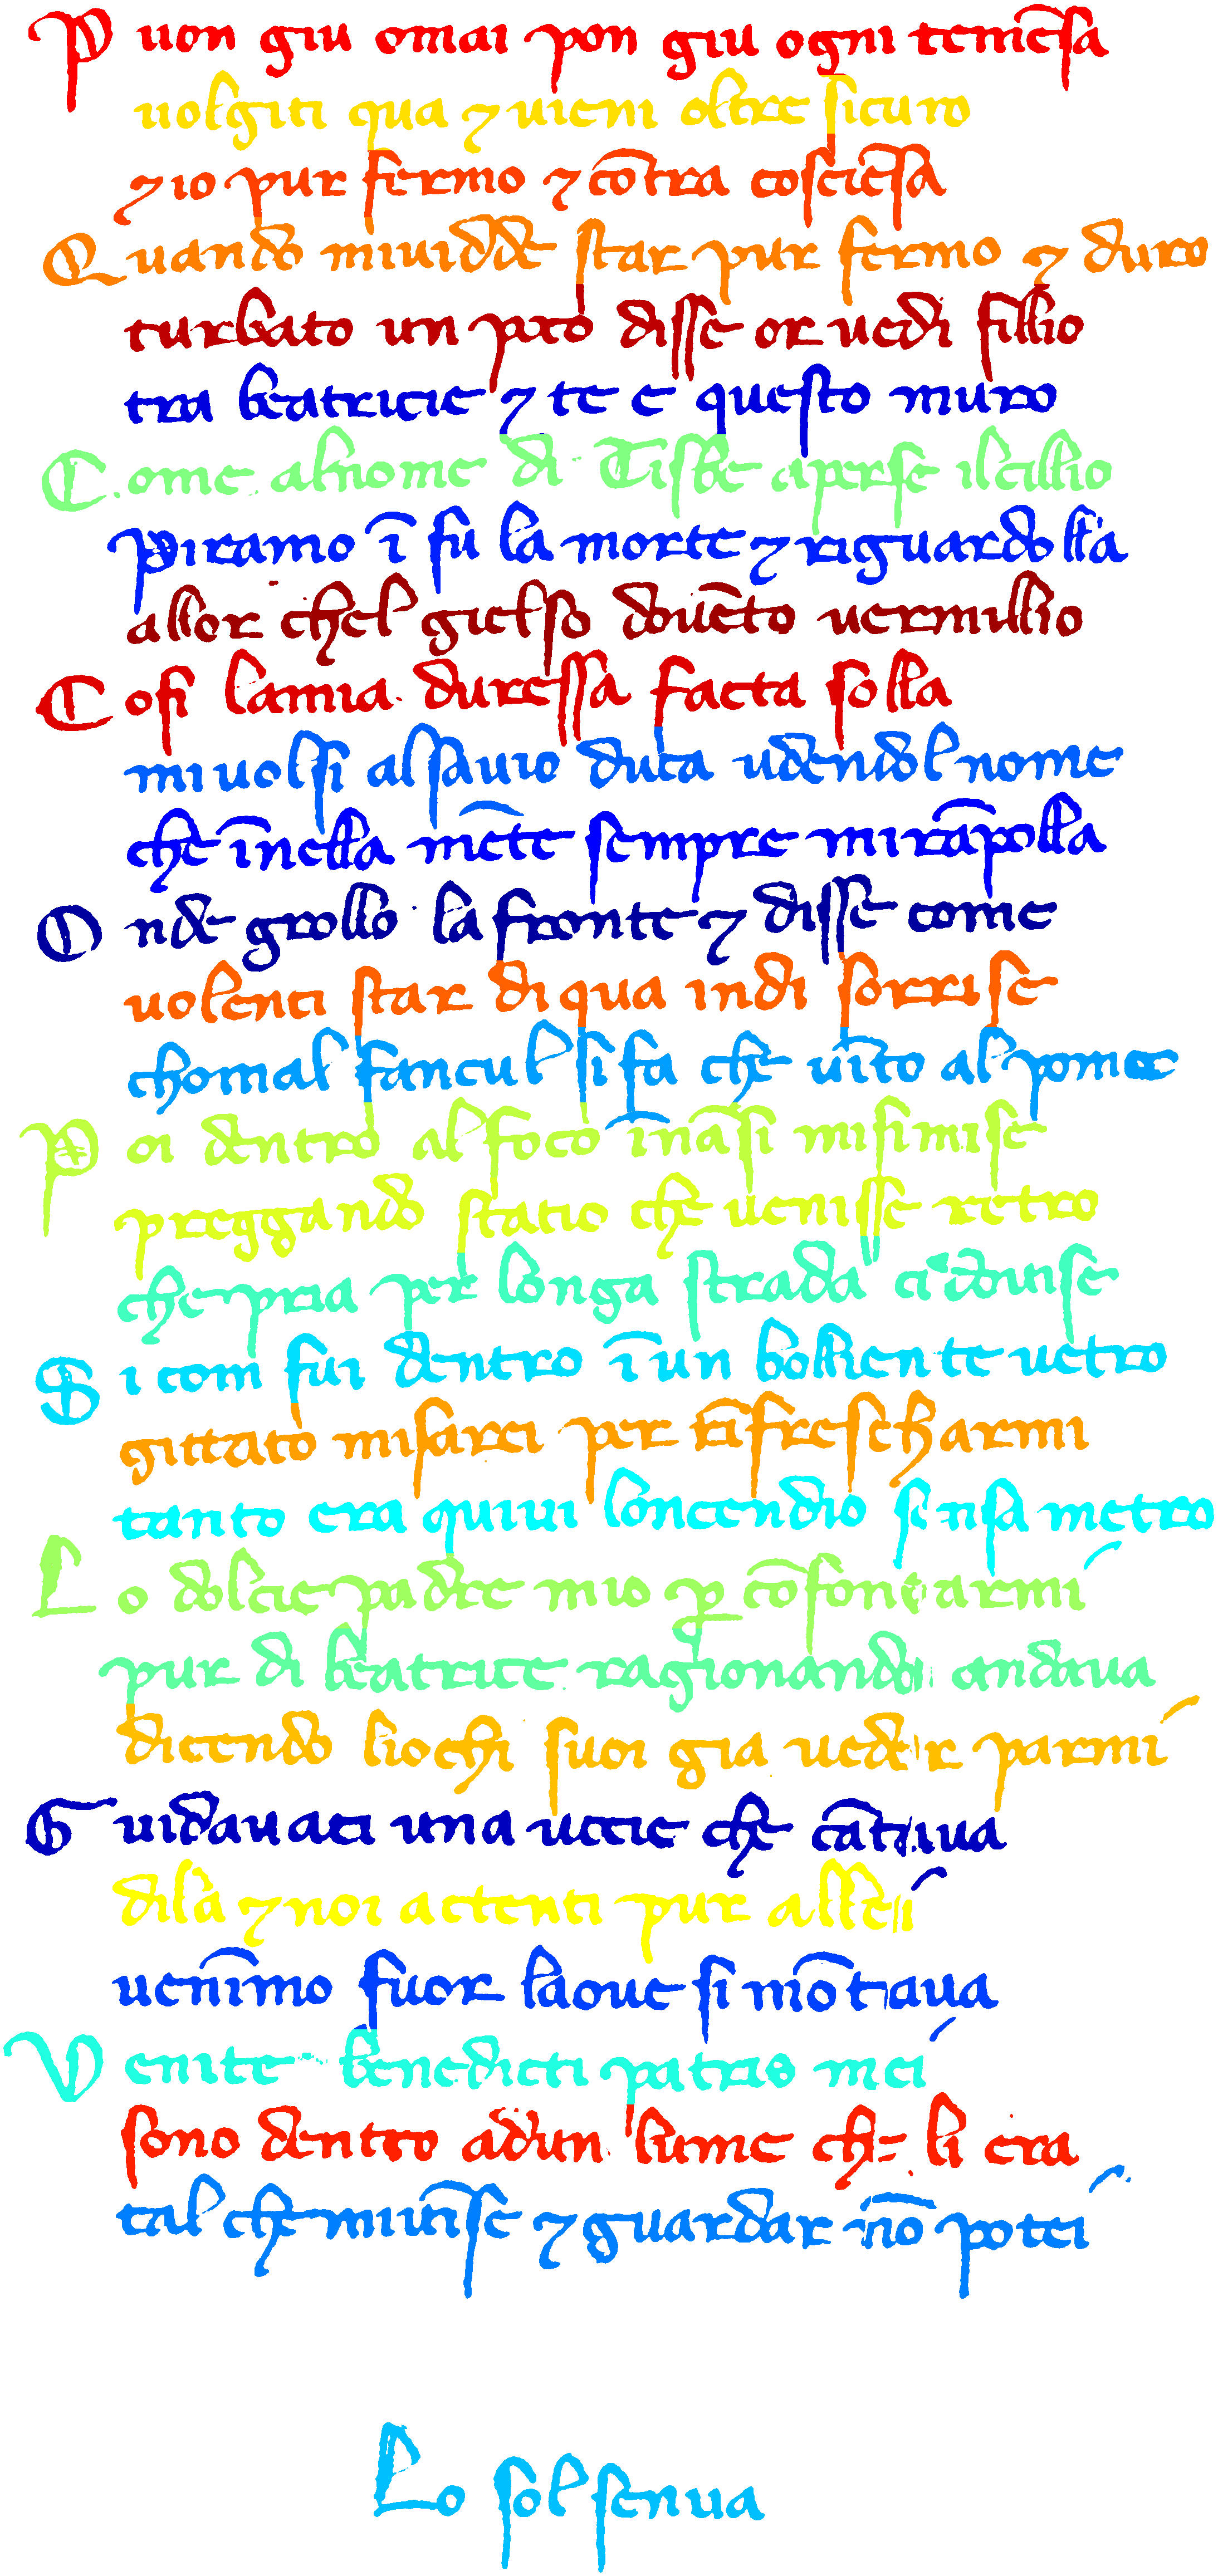 P uon giu omai pon giu ogni temēſa
uolgiti qua ⁊ uieni oltre ſicuro
⁊ io pur fermo ⁊ cōtra coſciēſa
Q uando miuidde ſtar pur fermo ⁊ duro
turbato un pro diſſe or uedi fillio
tra beatricie ⁊ te e queſto muro
C ome alnome di Tiſbe aperſe ilcillio
Piramo ī fu la morte ⁊ riguardolla
allor chel gielſo douēto uermillio
C oſi lamia dureſſa facta ſolla
miuolſi alſauio duca udendol nome
che īnella mēte ſempre mirāpolla
O nde grollo la fronte ⁊ diſſe come
uolenti ſtar diqua indi ſorriſe
chomal fancul ſifa che uīto al pome
P oi dentro alfoco īnāſi miſimiſe
preggando ſtatio che ueniſſe retro
che pria per longa ſtrada ci diuiſe
S i com fui dentro ī un bolliente uetro
gittato miſarei per rīfreſcharmi
tanto era quiui loncendio ſenſa metro
L o dolcie padre mio ꝑ cōfortarmi
pur di beatrice ragionando andaua
dicendo liochi ſuoi gia ueder parmi
G uidauaci una uocie che cātaua
dila ⁊ noi actenti pur allei
uenīmo fuor laoue ſi mōtaua
V enite benedicti patris mei
ſono dentro adun lume che li era
tal che miuīſe ⁊ guardar nō potei
Lo ſol ſenua